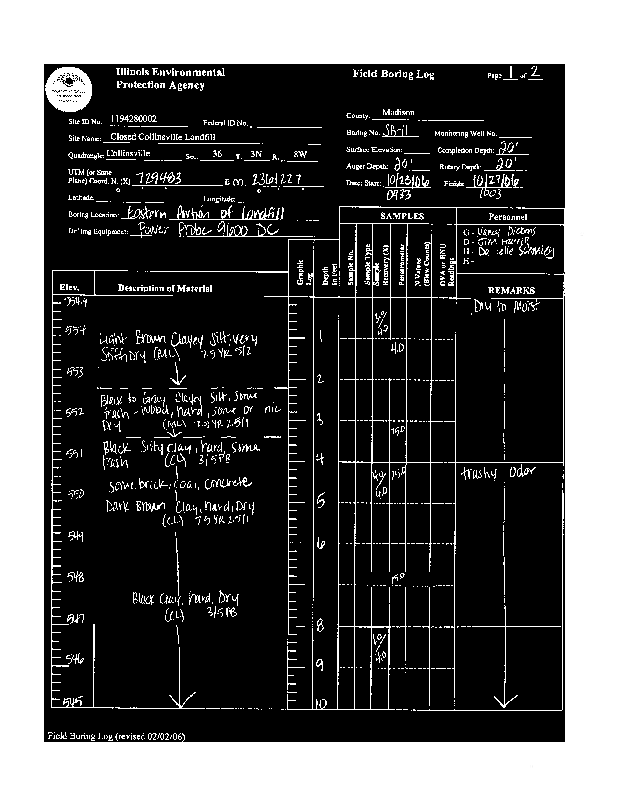 Illinois Environmental
Protection Agency
Field Boring Log
Page 1 of 2
Site ID No. 1194280002 Federal ID No.
County: Madison
Site Name: Closed Collinsville Landfill
Boring No. SB-11 Monitoring Well No.
Quadrangle: Collinsville Sec. 36 T. 3N R. 8W
Surface Elevation: Completion Depth: 20'
UTM (or State
Plane) Coord. N. (X) 729483 E (Y) 2361227
Auger Depth: 20' Rotary Depth: 20'
Date: Start: 10/23/06 Finish: 10/27/06
0933 1003
Latitude Longitude:
Boring Location: Eastern Portion of landfill
Drilling Equipment: Power Probe 9600 DC
SAMPLES
Personnel
G -
D - Jim
H -
R -
Elev.
Description of Material
Graphic
Log
Depth
in Feet
Sample No.
Sample Type
Sample
Recovery (X)
Penetrometer
N Values
(Blow Counts)
OVA or HNU
Readings
REMARKS
554.9
Dry to Moist
554
Light Brown Clayey Silt, very
Stiff, Dry (ML) 7.5 YR 5/2
1
4.0
553
2
Black to Gray Clayey Silt, some
552
trash - wood, hard, some or nic
Dry (ML) 7.5 YR 2.5/1
3
551
Black Silty Clay, hard, Some
trash (CL) 3/5PB
4
trashy odor
some brick, coal, concrete
550
5
Dark Brown Clay, hard, Dry
(CL) 7.5 YR 2.5/1
549
6
548
7
Black Clay, hard, Dry
(CL) 3/5PB
547
8
546
9
545
10
Field Boring Log (revised 02/02/06)